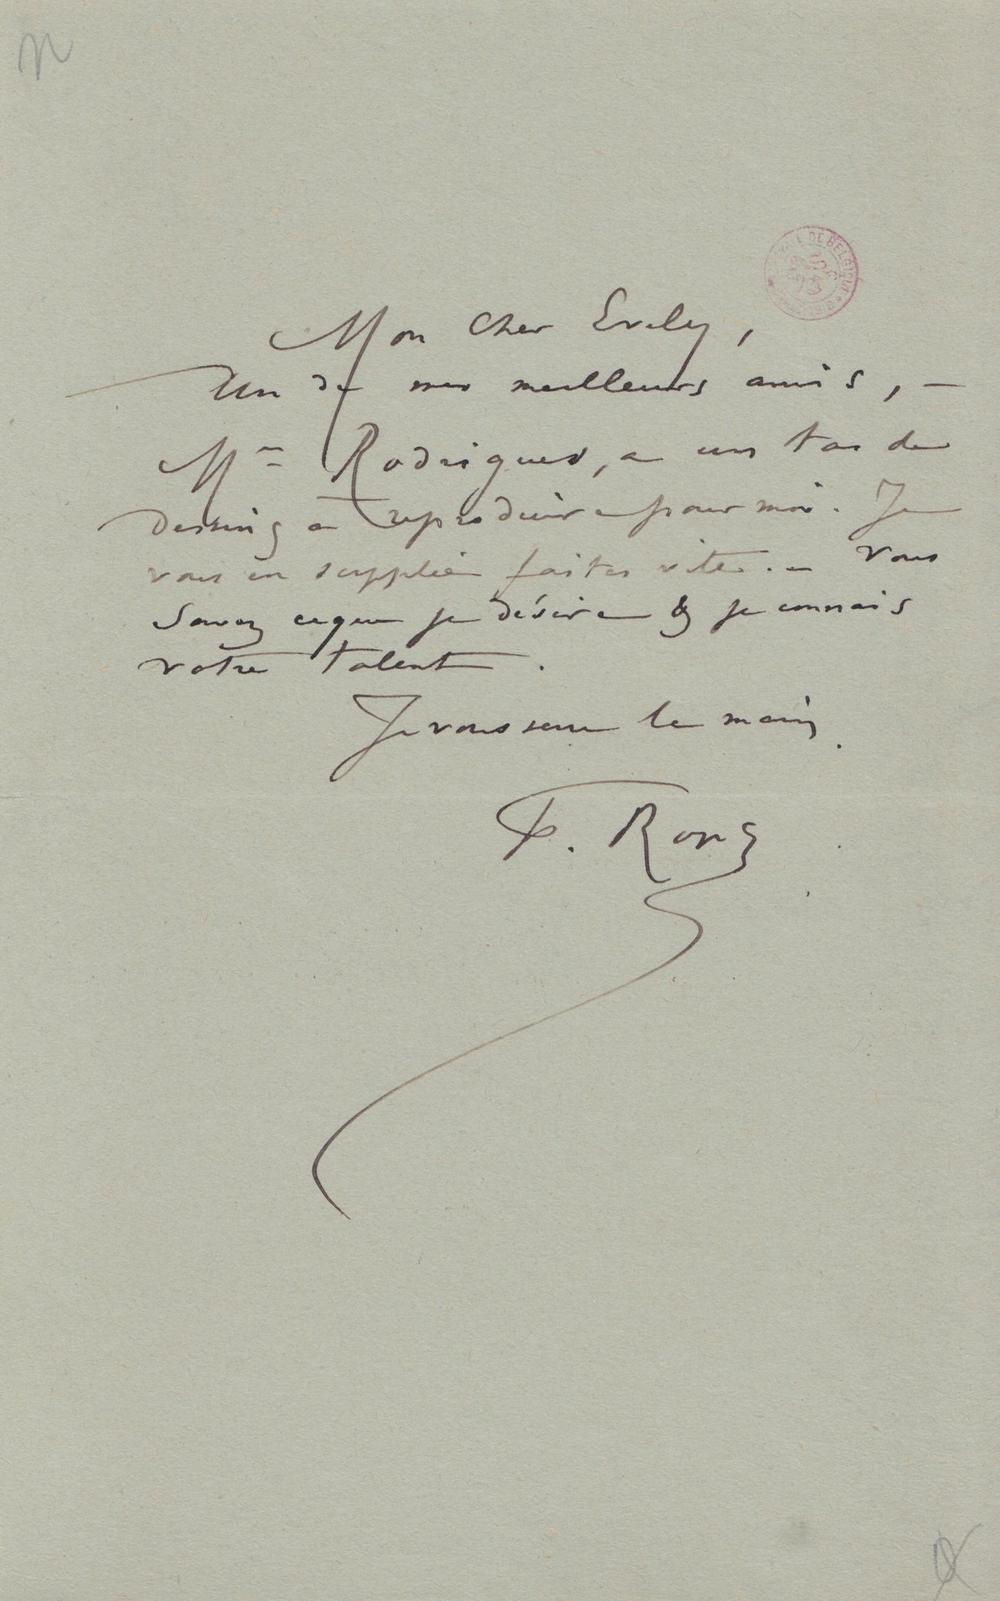 n
Mon Cher Evely,
Un de mes meilleurs amis, –
Mr Rodrigues, a un tas de
dessins a reproduire pour moi. Je
vous en supplie faites vite. – Vous
savez ceque je désire & je connais
votre talent.
Je vous serre la main.
F. Rops
DE BELGIQUE